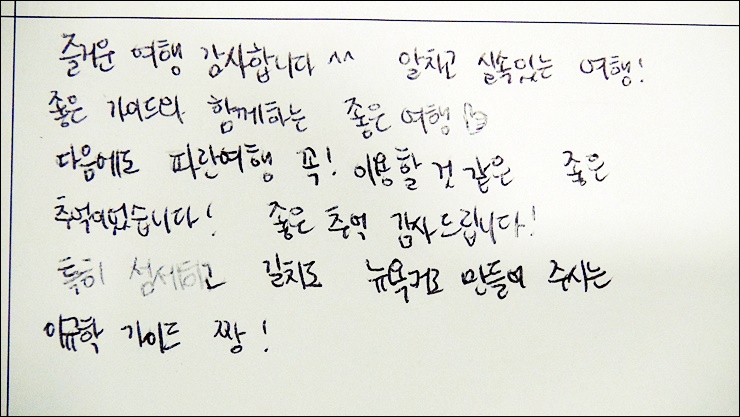 즐거운 여행 감사합니다 ^^ 알차고 실속있는 여행!
좋은 가이드와 함께하는 좋은 여행
다음에도 파란여행 꼭! 이용할 것 같은 좋은
추억이었습니다! 좋은 추억 감사드립니다!
특히 섬세하고 길치도 뉴욕커로 만들어 주시는
이규학 가이드 짱!